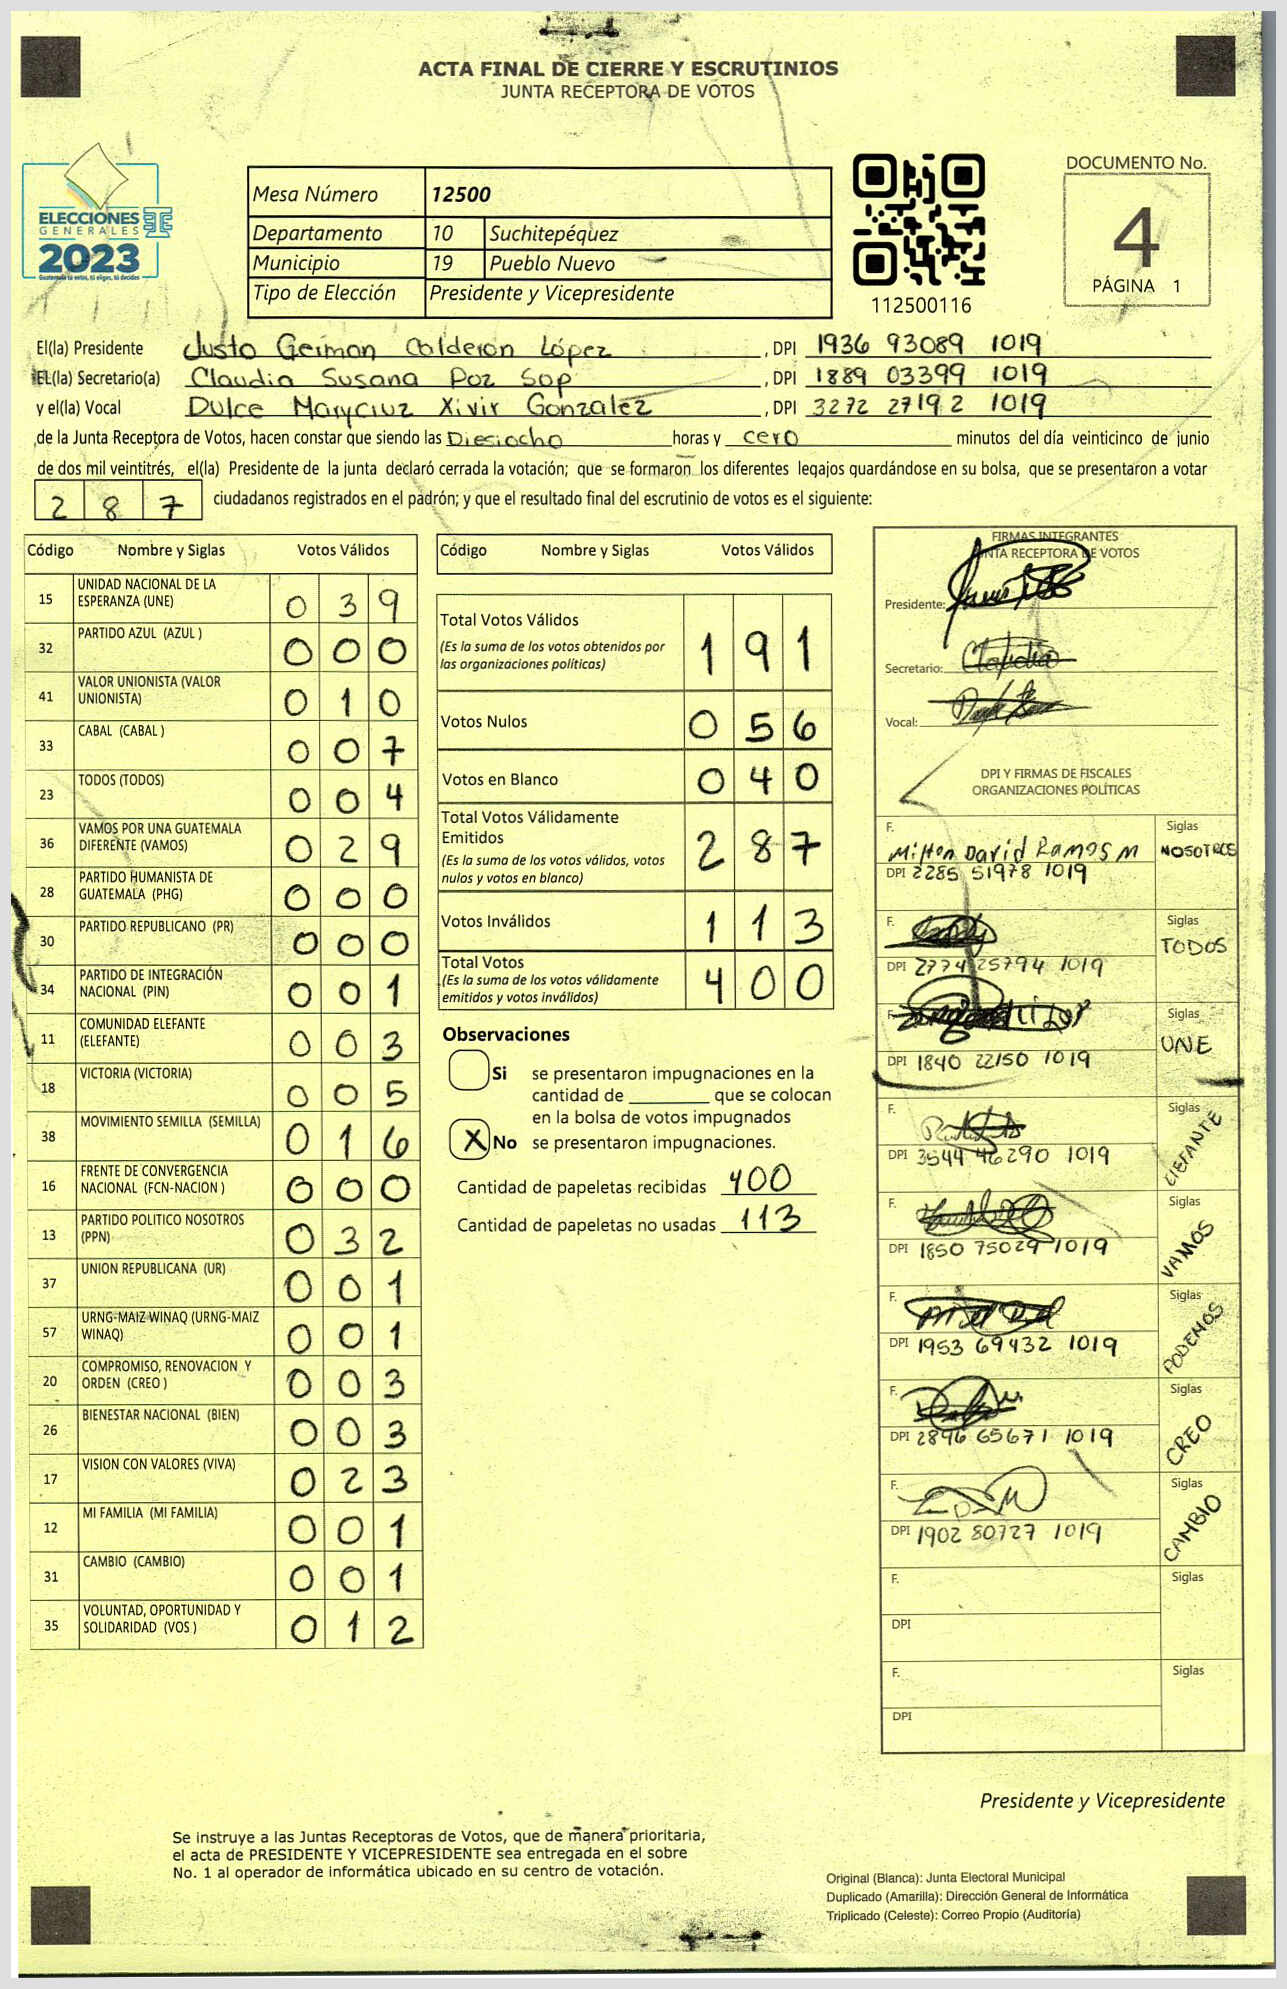 ACTA FINAL DE CIERRE Y ESCRUTINIOS
JUNTA RECEPTORA DE VOTOS
ELECCIONES
GENERALES
2023
Guatemala tú votas, tú eliges, tú decides
Mesa Número 12500
Departamento 10 Suchitepéquez
Municipio 19 Pueblo Nuevo
Tipo de Elección Presidente y Vicepresidente
112500116
DOCUMENTO No.
4
PÁGINA 1
El(la) Presidente Justo Geiman Calderon López, DPI 1936 93089 1019
EL(la) Secretario(a) Claudia Susana Poz Sop, DPI 1889 03399 1019
y el(la) Vocal Dulce Marycruz Xivir Gonzalez, DPI 3272 27192 1019
de la Junta Receptora de Votos, hacen constar que siendo las Diesiocho horas y cero minutos del día veinticinco de junio
de dos mil veintitrés, el(la) Presidente de la junta declaró cerrada la votación; que se formaron los diferentes legajos guardándose en su bolsa, que se presentaron a votar
287 ciudadanos registrados en el padrón; y que el resultado final del escrutinio de votos es el siguiente:
Código Nombre y Siglas Votos Válidos
15 UNIDAD NACIONAL DE LA ESPERANZA (UNE) 0 3 9
32 PARTIDO AZUL (AZUL ) 0 0 0
41 VALOR UNIONISTA (VALOR UNIONISTA) 0 1 0
33 CABAL (CABAL ) 0 0 7
23 TODOS (TODOS) 0 0 4
36 VAMOS POR UNA GUATEMALA DIFERENTE (VAMOS) 0 2 9
28 PARTIDO HUMANISTA DE GUATEMALA (PHG) 0 0 0
30 PARTIDO REPUBLICANO (PR) 0 0 0
34 PARTIDO DE INTEGRACIÓN NACIONAL (PIN) 0 0 1
11 COMUNIDAD ELEFANTE (ELEFANTE) 0 0 3
18 VICTORIA (VICTORIA) 0 0 5
38 MOVIMIENTO SEMILLA (SEMILLA) 0 1 6
16 FRENTE DE CONVERGENCIA NACIONAL (FCN-NACION ) 0 0 0
13 PARTIDO POLITICO NOSOTROS (PPN) 0 3 2
37 UNION REPUBLICANA (UR) 0 0 1
57 URNG-MAIZ WINAQ (URNG-MAIZ WINAQ) 0 0 1
20 COMPROMISO, RENOVACION Y ORDEN (CREO ) 0 0 3
26 BIENESTAR NACIONAL (BIEN) 0 0 3
17 VISION CON VALORES (VIVA) 0 2 3
12 MI FAMILIA (MI FAMILIA) 0 0 1
31 CAMBIO (CAMBIO) 0 0 1
35 VOLUNTAD, OPORTUNIDAD Y SOLIDARIDAD (VOS ) 0 1 2
Código Nombre y Siglas Votos Válidos
Total Votos Válidos 1 9 1
(Es la suma de los votos obtenidos por
las organizaciones políticas)
Votos Nulos 0 5 6
Votos en Blanco 0 4 0
Total Votos Válidamente
Emitidos 2 8 7
(Es la suma de los votos válidos, votos
nulos y votos en blanco)
Votos Inválidos 1 1 3
Total Votos 4 0 0
(Es la suma de los votos válidamente
emitidos y votos inválidos)
Observaciones
Si se presentaron impugnaciones en la
cantidad de ________ que se colocan
en la bolsa de votos impugnados
X No se presentaron impugnaciones.
Cantidad de papeletas recibidas 400
Cantidad de papeletas no usadas 113
FIRMAS INTEGRANTES
JUNTA RECEPTORA DE VOTOS
Presidente:
Secretario: Claudia
Vocal:
DPI Y FIRMAS DE FISCALES
ORGANIZACIONES POLÍTICAS
F. Milton David Ramos M Siglas NOSOTROS
DPI 2285 51978 1019
F. Siglas TODOS
DPI 2774 25794 1019
F. Siglas UNE
DPI 1840 22150 1019
F. Siglas LIEFANTE
DPI 3544 46290 1019
F. Siglas VAMOS
DPI 1850 75029 1019
F. Siglas PODEMOS
DPI 1953 69432 1019
F. Siglas CREO
DPI 2896 65671 1019
F. Siglas CAMBIO
DPI 1902 80727 1019
F. Siglas
DPI
F. Siglas
DPI
Presidente y Vicepresidente
Se instruye a las Juntas Receptoras de Votos, que de manera prioritaria,
el acta de PRESIDENTE Y VICEPRESIDENTE sea entregada en el sobre
No. 1 al operador de informática ubicado en su centro de votación.
Original (Blanca): Junta Electoral Municipal
Duplicado (Amarilla): Dirección General de Informática
Triplicado (Celeste): Correo Propio (Auditoría)